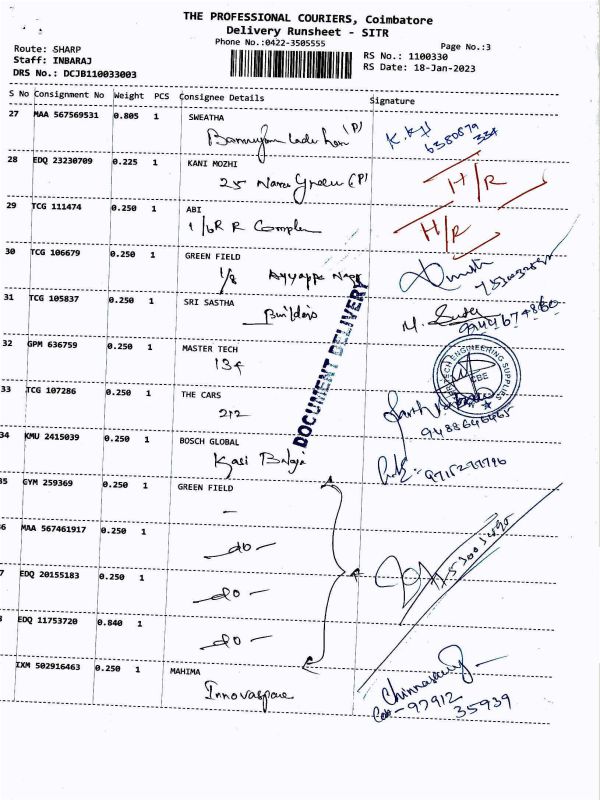 THE PROFESSIONAL COURIERS, Coimbatore
Delivery Runsheet - SITR
Phone No.:0422-3505555
Page No.:3
Route: SHARP
Staff: INBARAJ
DRS No.: DCJB110033003
RS No.: 1100330
RS Date: 18-Jan-2023
S No Consignment No Weight PCS Consignee Details Signature
27 MAA 567569531 0.805 1 SWEATHA
(P)
K.K
6380879
334
28 EDQ 23230709 0.225 1 KANI MOZHI
25 Green (P)
H/R
29 TCG 111474 0.250 1 ABI
R R Complex
H/R
30 TCG 106679 0.250 1 GREEN FIELD
1/8 Ayyappa Nagar
31 TCG 105837 0.250 1 SRI SASTHA
Builders
M.
9944674860
DOCUMENT DELIVERY
32 GPM 636759 0.250 1 MASTER TECH
134
ENGINEERING SUPPLIES
33 TCG 107286 0.250 1 THE CARS
212
9488646465
34 KMU 2415039 0.250 1 BOSCH GLOBAL
Kasi Balaji
9715277796
35 GYM 259369 0.250 1 GREEN FIELD
-
6 MAA 567461917 0.250 1
- do -
7 EDQ 20155183 0.250 1
- do -
8 EDQ 11753720 0.840 1
- do -
IXM 502916463 0.250 1 MAHIMA
Innovaspace
Chinnasamy
97912
35939